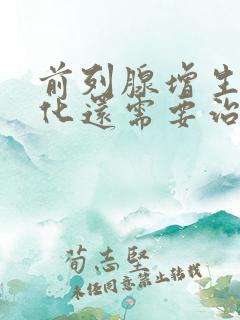 前列腺增生
化还需要治
荀志坚
未经同意禁止转载